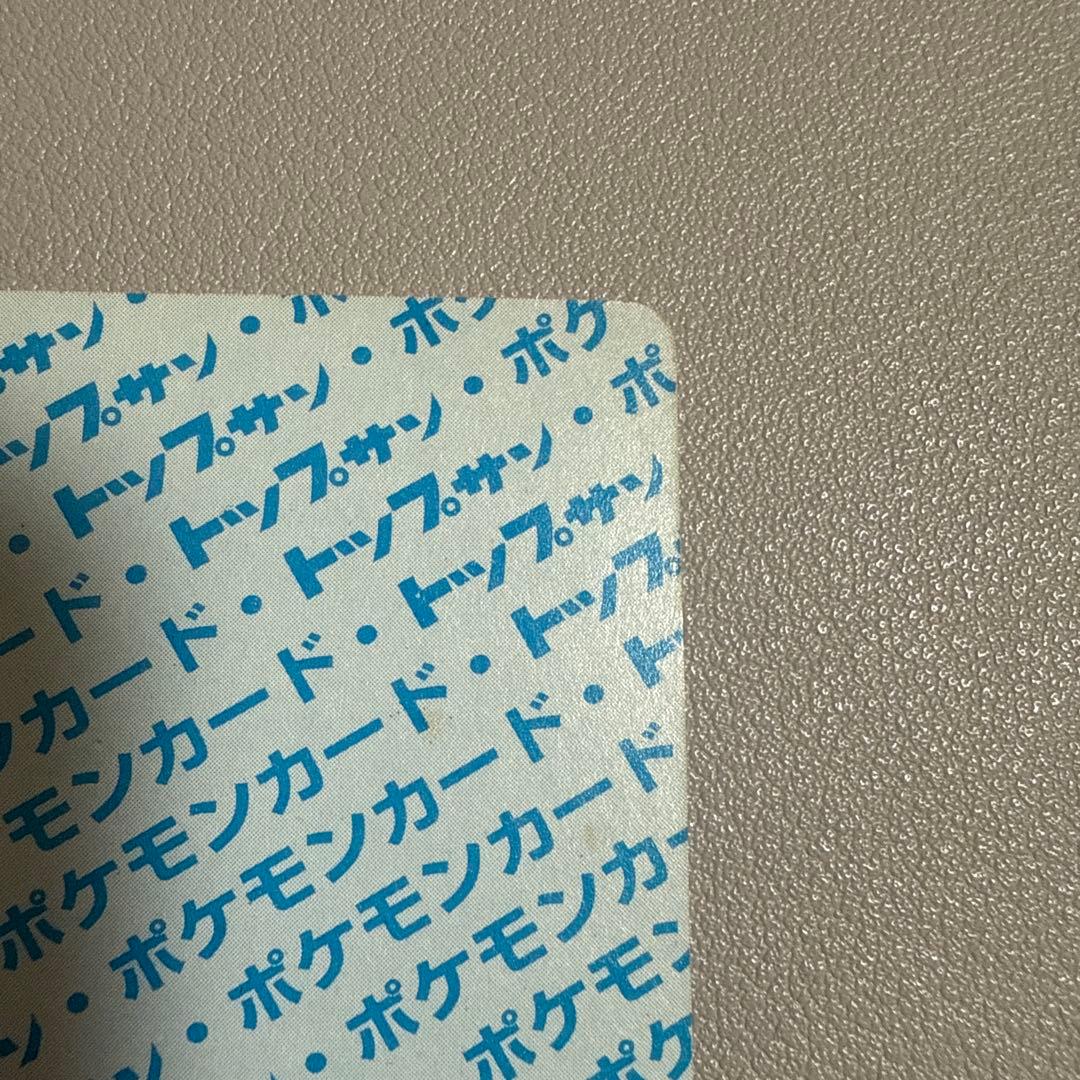 サン・
ップサン・ポ
・トップサン・ポケ
ード・トップサン・ポケ
ンカード・トップサン・ポ
モンカード・トップサン
ポケモンカード・トップ
・ポケモンカード・ト
ン・ポケモンカード
・ポケモンカー
ポケモン
ポケ